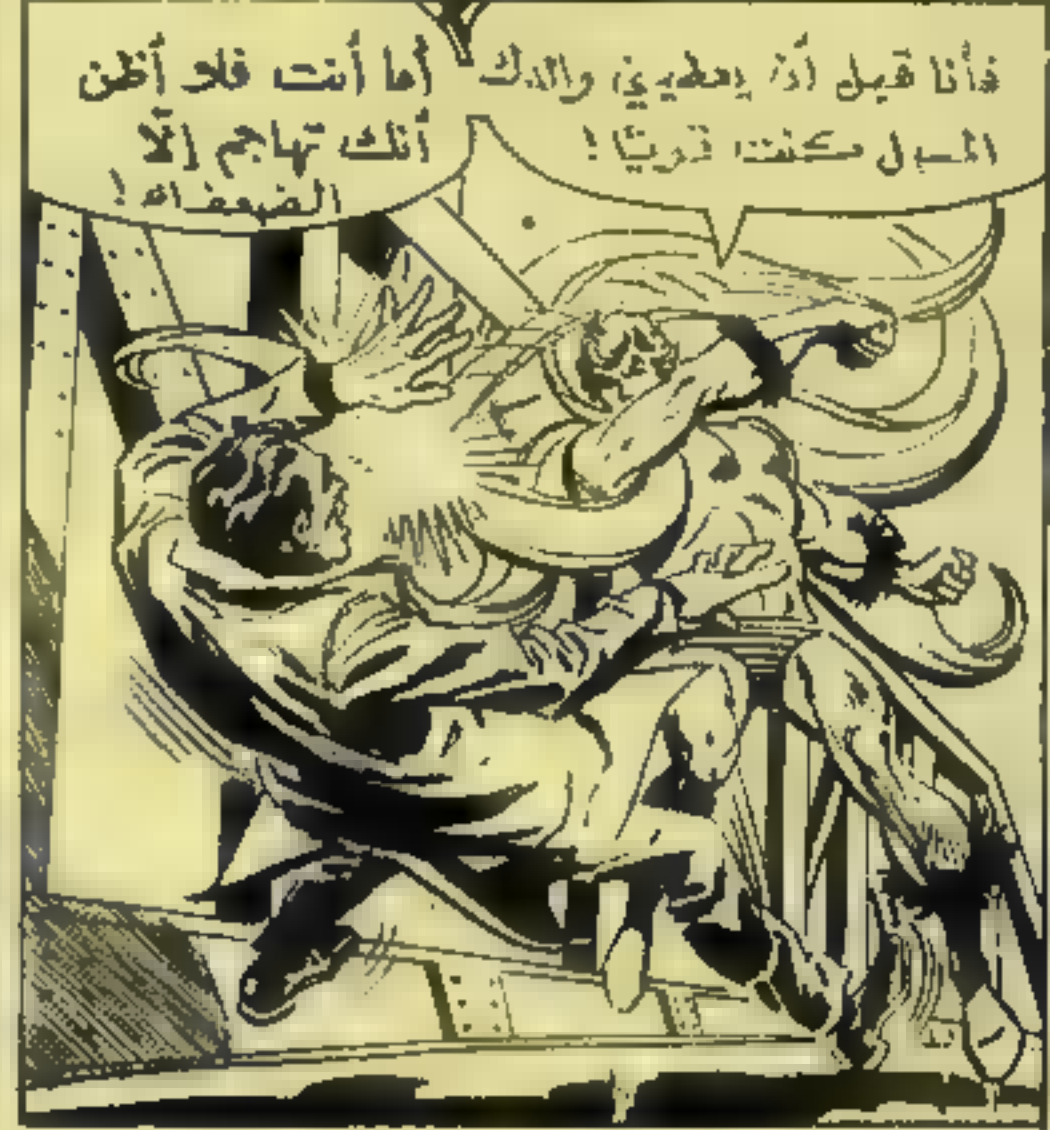 فأنا قبل أن يعطيني والدك
المصل كنت قويًا!
أما أنت فلا أظن
أنك تهاجم إلّا
الضعفاء!